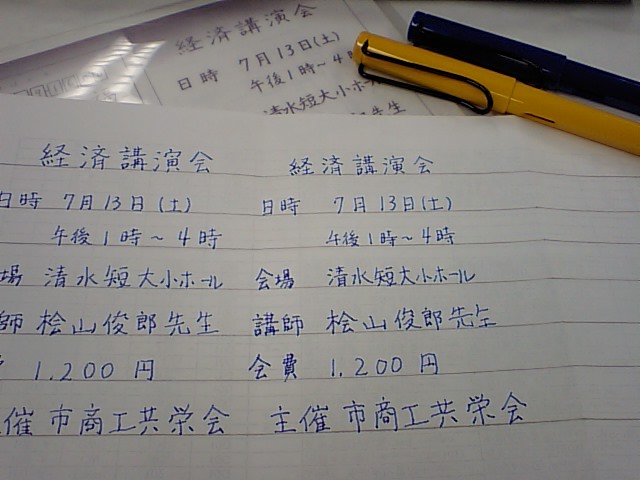 経済講演会
日時 7月13日(土)
午後1時～4
清水短大小ホール
先生
経済講演会
日時 7月13日(土)
午後1時～4時
場 清水短大小ホール
師 桧山俊郎先生
1.200円
催 市商工共栄会
経済講演会
日時 7月13日(土)
午後1時～4時
会場 清水短大小ホール
講師 桧山俊郎先生
会費 1.200円
主催 市商工共栄会